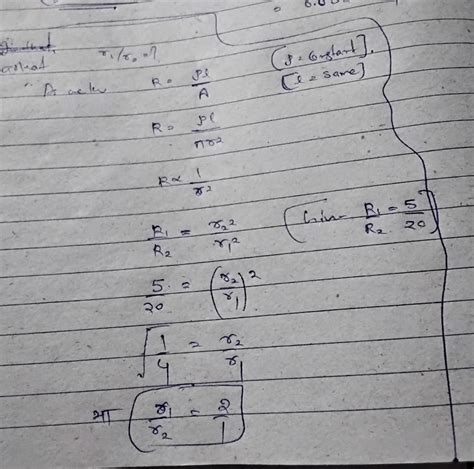 r₁/r₂ = ?
R = ρl/A [ρ = Constant],
[l = Same]
R = ρl/πr²
R ∝ 1/r²
R₁/R₂ = r₂²/r₁² (Given R₁/R₂ = 5/20)
5/20 = (r₂/r₁)²
√(1/4) = r₂/r₁
या r₁/r₂ = 2/1